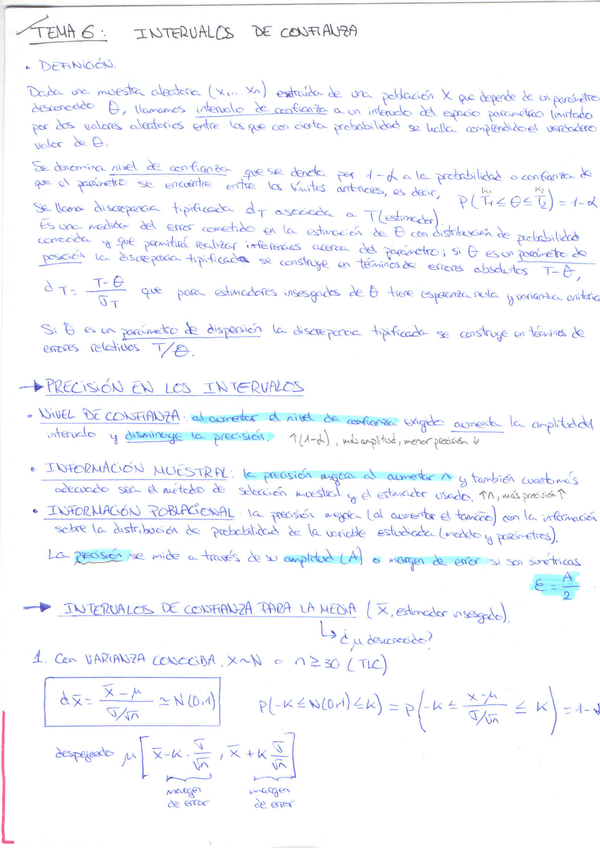 TEMA 6: INTERVALOS DE CONFIANZA
• DEFINICIÓN.
Dada una muestra aleatoria (x1... xn) extraída de una población X que depende de un parámetro
desconocido θ, llamamos intervalo de confianza a un intervalo del espacio paramétrico limitado
por dos valores aleatorios entre los que con cierta probabilidad se halla comprendido el verdadero
valor de θ.
Se denomina nivel de confianza que se denota por 1-α a la probabilidad o confianza de
que el parámetro se encuentre entre los límites anteriores, es decir, P(T1 ≤ θ ≤ T2) = 1-α
K1 K2
Se llama discrepancia tipificada dT asociada a T (estimador).
Es una medida del error cometido en la estimación de θ con distribución de probabilidad
conocida y que permitirá realizar inferencias acerca del parámetro; si θ es un parámetro de
posición la discrepancia tipificada se construye en términos de errores absolutos T-θ,
dT = T-θ / σT que para estimadores insesgados de θ tiene esperanza nula y varianza unitaria.
Si θ es un parámetro de dispersión la discrepancia tipificada se construye en términos de
errores relativos T/θ.
→ PRECISIÓN EN LOS INTERVALOS
• NIVEL DE CONFIANZA: al aumentar el nivel de confianza exigido aumenta la amplitud del
intervalo y disminuye la precisión. ↑(1-α), más amplitud, menor precisión ↓
• INFORMACIÓN MUESTRAL: la precisión mejora al aumentar n y también cuanto más
adecuado sea el método de selección muestral y el estimador usado. ↑n, más precisión ↑
• INFORMACIÓN POBLACIONAL: la precisión mejora (al aumentar el tamaño) con la información
sobre la distribución de probabilidad de la variable estudiada (modelo y parámetros).
La precisión se mide a través de su amplitud (A) o margen de error si son simétricas
ε = A/2
→ INTERVALOS DE CONFIANZA PARA LA MEDIA (x̄, estimador insesgado).
↳ ¿μ desconocido?
1. Con VARIANZA CONOCIDA, X~N o n ≥ 30 (TLC)
dx̄ = x̄-μ / σ/√n ≃ N(0,1) P(-K ≤ N(0,1) ≤ K) = P(-K ≤ x-μ / σ/√n ≤ K) = 1-α
despejando μ [x̄ - K · σ/√n , x̄ + K σ/√n]
margen margen
de error de error